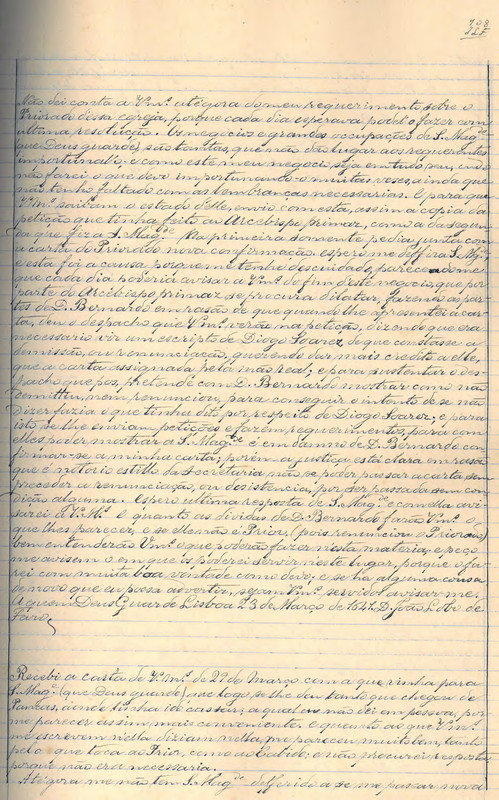 Não dei conta a Vmᶜˢ até gora do meu requerimento sobre o
Priorado dessa egreja, porque cada dia esperava podel-o fazer com
ultima resolução. Os negocios e grandes occupações de S. Magᵈᵉ
que Deus guarde, são tantas, que não dão lugar aos requerentes
importunal-o: e como este meu negocio, seja em tudo seu, cuido
não farei o que devo importunando-o muitas veses, ainda que
não tenho faltado com as lembranças necessarias. E para que
Vᵃˢ Mᶜˢ saibam o estado d'elle, envio com esta, assim a copia da
petição que tinha feito ao Arcebispo Primaz, como a da segun-
da que fiz a S. Magᵈᵉ Na primeira somente pedia, junta com
a carta do Priorado nova confirmação. espero me defira S. Magᵉ
e esta foi a causa porque me tenho descuidado, parecendo-me
que cada dia poderia avisar a Vmᶜˢ do fim d'este negocio, que por
parte do Arcebispo primaz se procura dilatar, fazendo as par-
tes de D. Bernardo em rasão de que quando lhe apresentei a car-
ta, deu o despacho que Vmᶜˢ verão na petição, dizendo que era
necessario vir um escripto de Diogo Soarez, de que constasse a
demissão, ou renunciação, querendo dar mais credito a elle,
que a carta assignada pela mão real; e para sustentar o des-
pacho que pos, pretende com D. Bernardo mostrar como não
demittiu, nem renunciou, para conseguir o intento de se não
dizer fazia o que tinha dito por respeito de Diogo Soarez; e para
isto se lhe enviam petições e fazem requerimentos, para com
elles poder mostrar a S. Magᵈᵉ é em damno de D. Bernardo con-
firmar-se a minha carta; porém a justiça está clara em rasão
que é notorio estillo da Secretaria não se poder passar a carta sem
preceder a renunciação, ou desistencia, por ser passada sem con-
dição alguma. Espero ultima resposta de S. Magᵉ e com ella avi-
sarei a Vᵃˢ Mᶜˢ E quanto as dividas de D. Bernardo farão Vmᶜˢ o
que lhes parecer, e se elle não é Prior, (pois renunciou o Priorado)
bem entenderão Vmᶜˢ o que poderão fazer n'esta materia; e peço
me avisem o em que os poderei servir n'este lugar, porque o fa-
rei com muita boa vontade como devo, e se ha alguma cousa
de novo que eu possa advertir, sejam Vmᶜˢ servidos avisar-me.
A quem Deus Guarde Lisboa 23 de Março de 1641. D. João Lobo de
Faro,
Recebi a carta de Vᵃˢ Mᶜˢ de 29 de Março com a que vinha para
S. Magᵉ (que Deus guarde) que logo se lhe deu tanto que chegou de
aonde tinha ido cassar, a qual eu não dei em pessoa, por
me parecer assim mais conveniente. e quanto ao que Vmᶜˢ
me escrevem n'ella diziam n'ella, me pareceu muito bem, tanto
pelo que toca ao Prior, como ao Cabido: e não procurei resposta
porque não era necessaria.
Até gora me não tem S. Magᵈᵉ defferido a se me passar nova